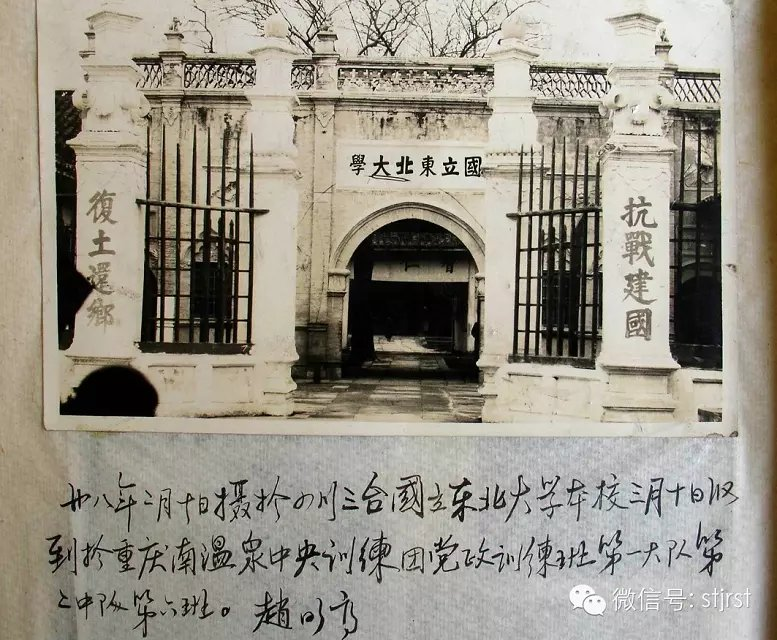 國立東北大學
抗戰建國
復土還鄉
廿八年二月十日摄於四川三台國立东北大学本校三月十日收
到於重庆南温泉中央训練团党政训練班第一大队第
二中队第六班。趙明
微信号: stjrst